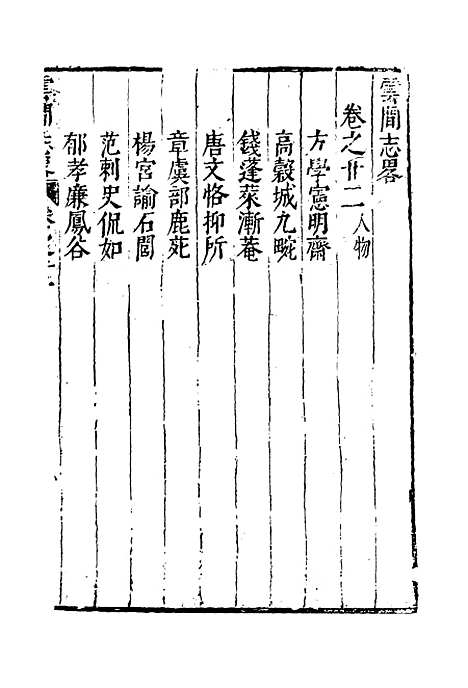 雲間志畧
卷之廿二人物
方學憲明齋
高穀城九畹
錢蓬萊漸菴
唐文恪抑所
章虞部鹿苑
楊宮諭石閭
范刺史侃如
郁孝廉鳳谷